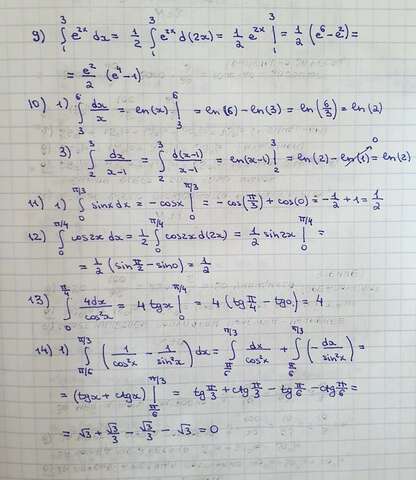 9) ∫₁³ e²ˣ dx = 1/2 ∫₁³ e²ˣ d(2x) = 1/2 e²ˣ |₁³ = 1/2 (e⁶ - e²) =
= e²/2 (e⁴ - 1)
10) 1) ∫₃⁶ dx/x = ln(x) |₃⁶ = ln(6) - ln(3) = ln(6/3) = ln(2)
3) ∫₂³ dx/(x-1) = ∫₂³ d(x-1)/(x-1) = ln(x-1) |₂³ = ln(2) - ln(1)→0 = ln(2)
11) 1) ∫₀^(π/3) sinx dx = -cosx |₀^(π/3) = -cos(π/3) + cos(0) = -1/2 + 1 = 1/2
12) ∫₀^(π/4) cos2x dx = 1/2 ∫₀^(π/4) cos2x d(2x) = 1/2 sin2x |₀^(π/4) =
= 1/2 (sin π/2 - sin0) = 1/2
13) ∫₀^(π/4) 4dx/cos²x = 4 tgx |₀^(π/4) = 4 (tg π/4 - tg0) = 4
14) 1) ∫_(π/6)^(π/3) (1/cos²x - 1/sin²x) dx = ∫_(π/6)^(π/3) dx/cos²x + ∫_(π/6)^(π/3) (-dx/sin²x) =
= (tgx + ctgx) |_(π/6)^(π/3) = tg π/3 + ctg π/3 - tg π/6 - ctg π/6 =
= √3 + √3/3 - √3/3 - √3 = 0